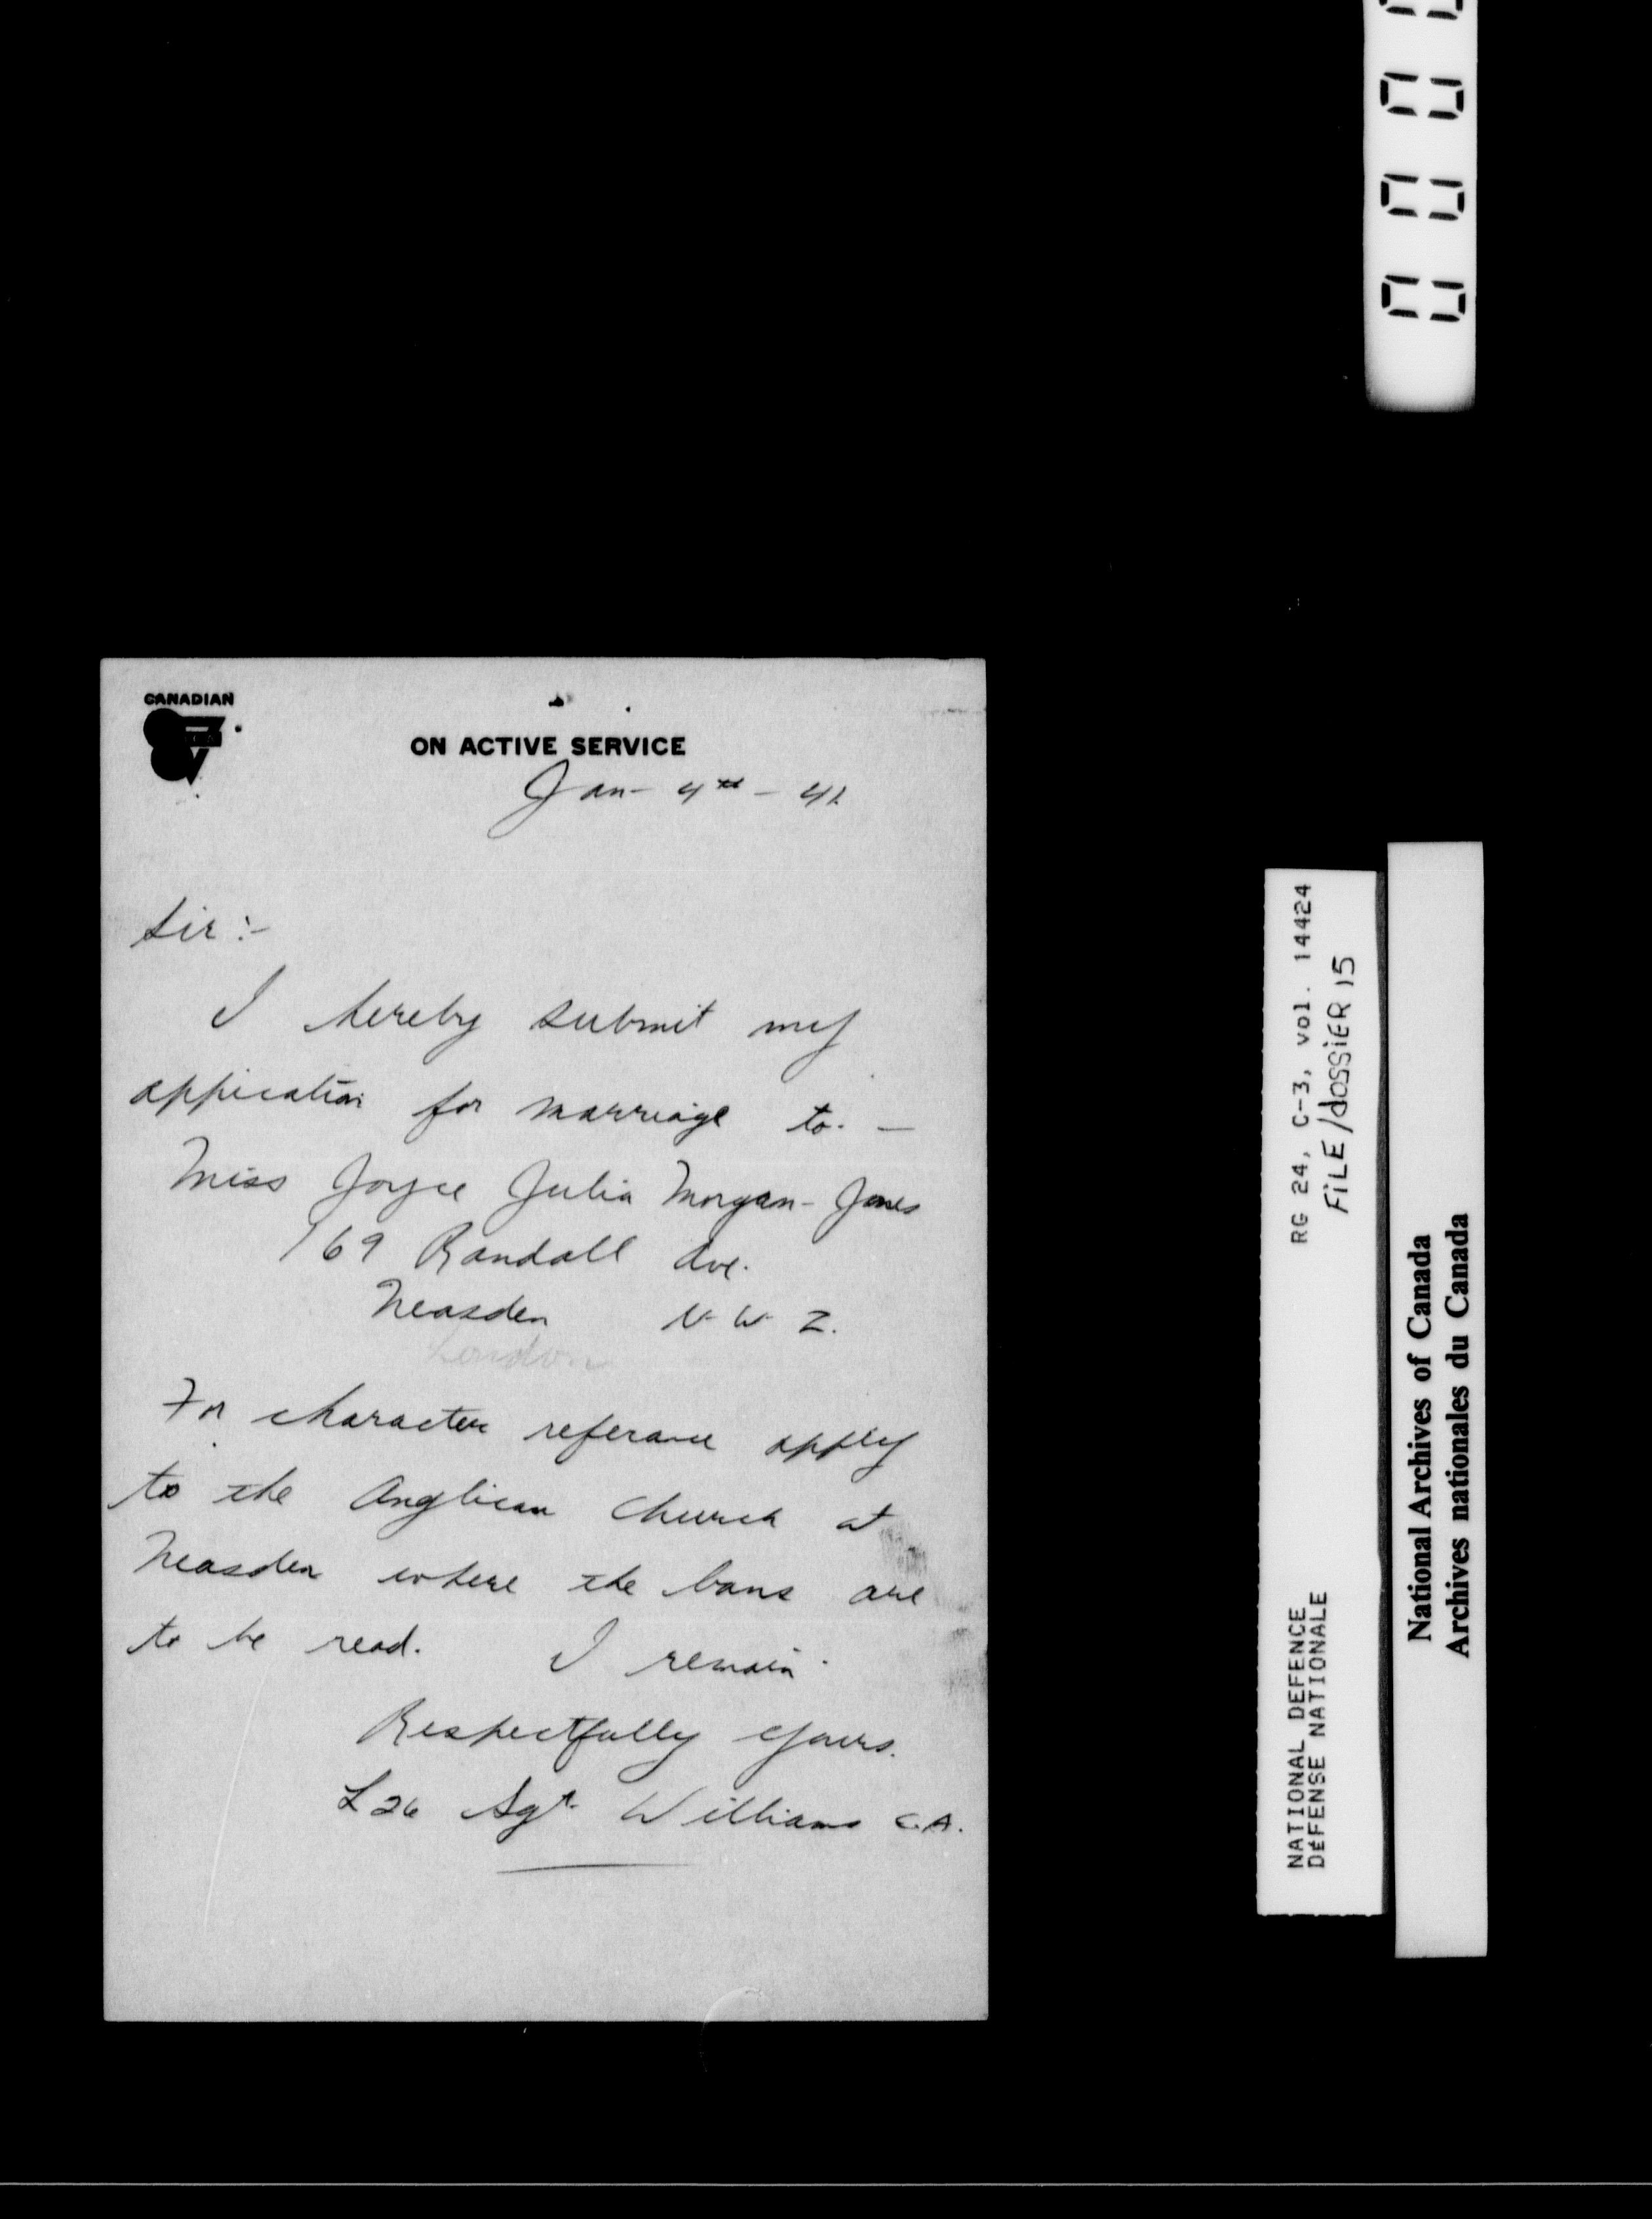 CANADIAN
ON ACTIVE SERVICE
Jan - 4th - 41
Sir :-
I hereby submit my
appication for marriage to. -
Miss Joyce Julia Morgan - Jones
169 Randall Ave.
Neasden N. W. 2.
London
For character referance apply
to the Anglican Church at
Neasden where the bans are
to be read. I remain
Respectfully yours.
L26 Sgt. Williams C.A.
RG 24, C-3, vol. 14424
FILE/dOSSiER 15
NATIONAL DEFENCE
DéFENSE NATIONALE
National Archives of Canada
Archives nationales du Canada